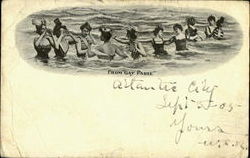 "FROM GAY PAREE"
Atlantic City
Sept 2-05
Yours